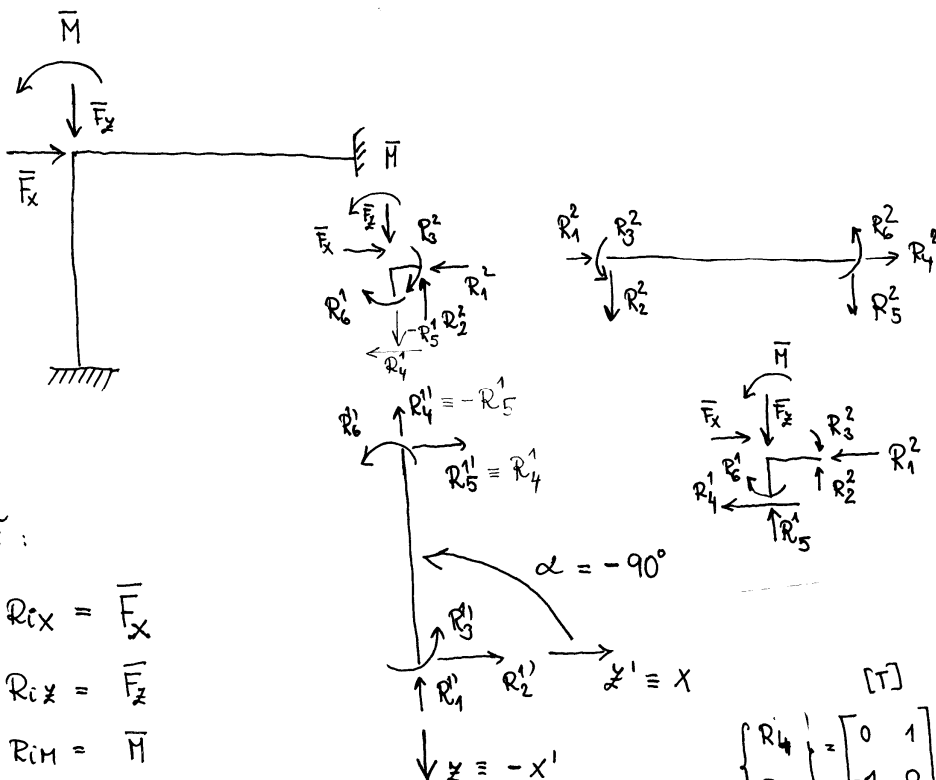 M̅
F̅z
F̅x
M̅
F̅z
F̅x
R₃²
R₁²
R₆¹
-R₅¹ R₂²
R₄¹
R₁² R₃²
R₂²
R₆²
R₄²
R₅²
R₄¹' ≡ -R₅¹
R₆¹'
R₅¹' ≡ R₄¹
M̅
F̅x F̅z
R₃²
R₁²
R₆¹
R₂²
R₄¹
R₅¹
α = -90°
:
Rix = F̅x
Riz = F̅z
RiM = M̅
R₃¹'
R₁¹' R₂¹'
z' ≡ x
z ≡ -x'
[T]
{ R₄ } = [ 0 1